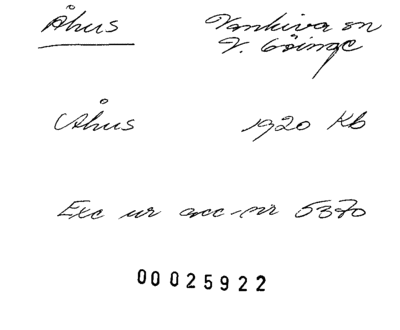 Åhus Vankiva sn
V. Göinge
Åhus 1920 Kb
Exc ur acc-nr 5370
00025922